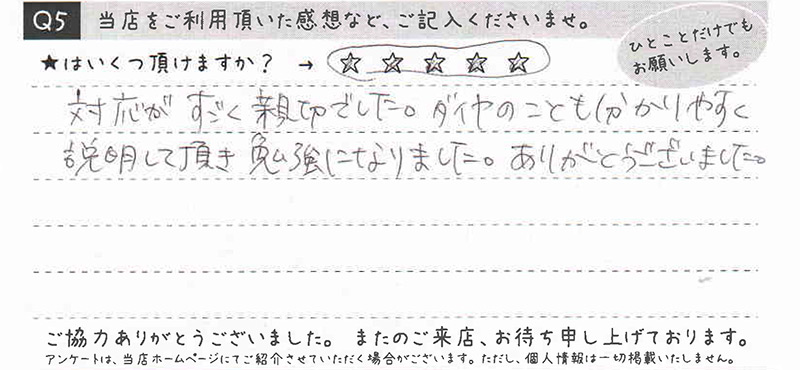 Q5 当店をご利用頂いた感想など、ご記入くださいませ。
★はいくつ頂けますか? → ☆ ☆ ☆ ☆ ☆
ひとことだけでも
お願いします。
対応がすごく親切でした。ダイヤのことも分かりやすく
説明して頂き勉強になりました。ありがとうございました。
ご協力ありがとうございました。 またのご来店、お待ち申し上げております。
アンケートは、当店ホームページにてご紹介させていただく場合がございます。ただし、個人情報は一切掲載いたしません。